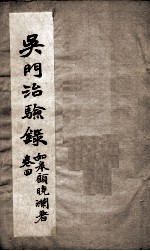 吳門治驗錄
卷四
如皋顧曉瀾著